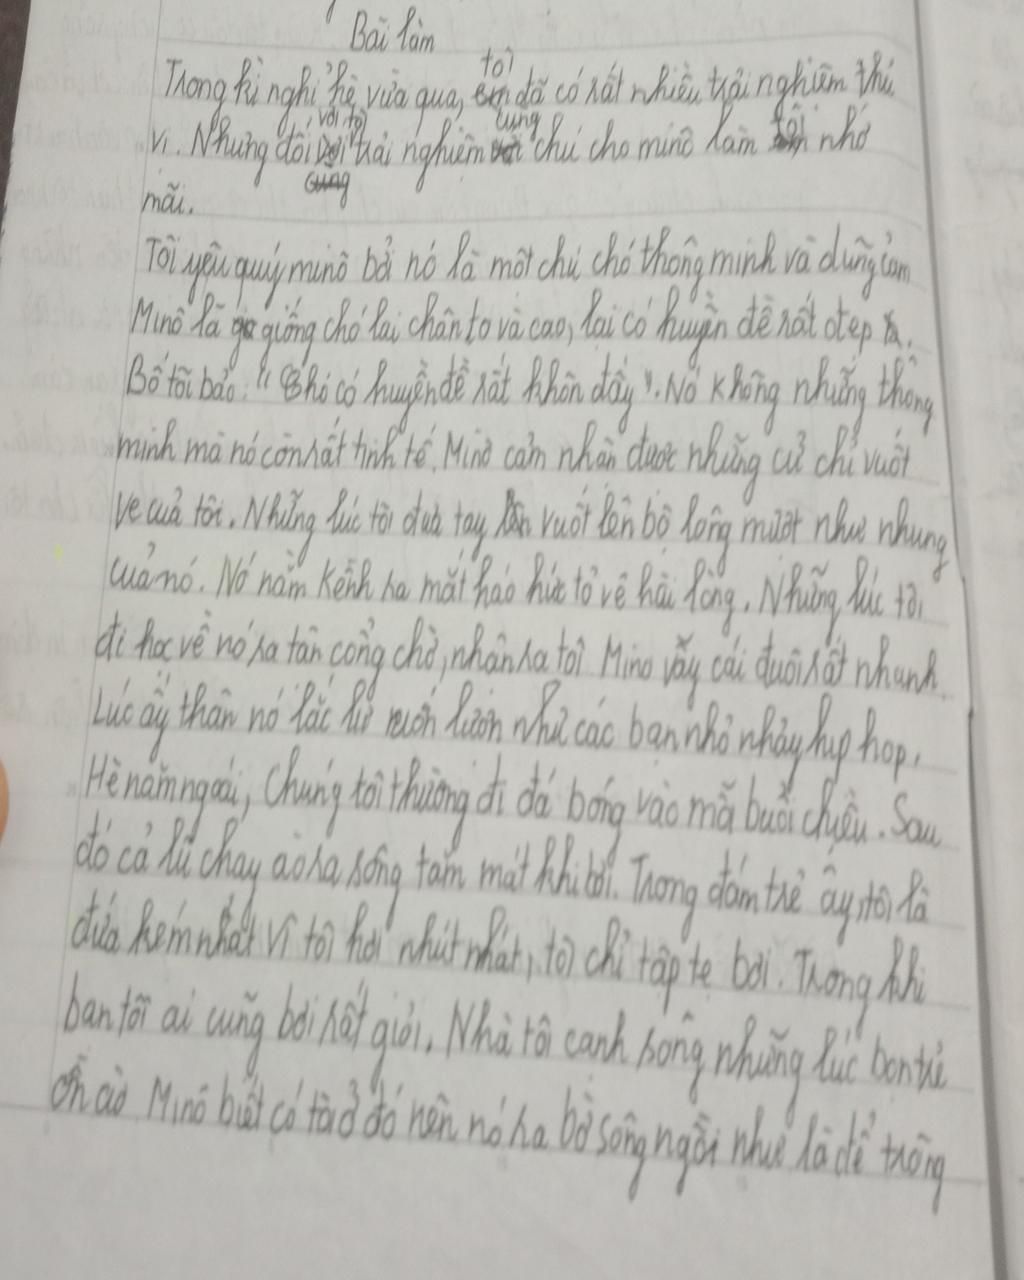 Bài làm
Trong kì nghỉ hè vừa qua, tôi đã có rất nhiều trải nghiệm thú
vị. Nhưng đối với tôi trải nghiệm cùng chú chó minô làm tôi nhớ
mãi.
Tôi yêu quý minô bởi nó là một chú chó thông minh và dũng cảm
Minô là giống chó lai chân to và cao, lại có huyền đề rất đẹp.
Bố tôi bảo: "Chó có huyền đề rất khôn đấy". Nó không những thông
minh mà nó còn rất tinh tế. Minô cảm nhận được những cử chỉ vuốt
ve cuả tôi. Những lúc tôi đưa tay vuốt lên bộ lông mượt như nhung
cuả nó. Nó nằm kềnh ra mắt háo hức tỏ vẻ hài lòng. Những lúc tôi
đi học về nó ra tận cổng chờ, nhận ra tôi Minô vẫy cái đuôi rất nhanh.
Lúc ấy thân nó lắc lư uốn lượn như các bạn nhỏ nhảy hip hop.
Hè năm ngoái, chúng tôi thường đi đá bóng vào mỗi buổi chiều. Sau
đó cả lũ chạy ào ra sông tắm mát khi bơi. Trong đám trẻ ấy, tôi là
đứa kém nhất vì tôi hơi nhút nhát, tôi chỉ tập tẹ bơi. Trong khi
bạn tôi ai cũng bơi rất giỏi. Nhà tôi cạnh sông những lúc bọn trẻ
ồn ào Minô biết có tôi ở đó nên nó ra bờ sông ngồi như là để trông